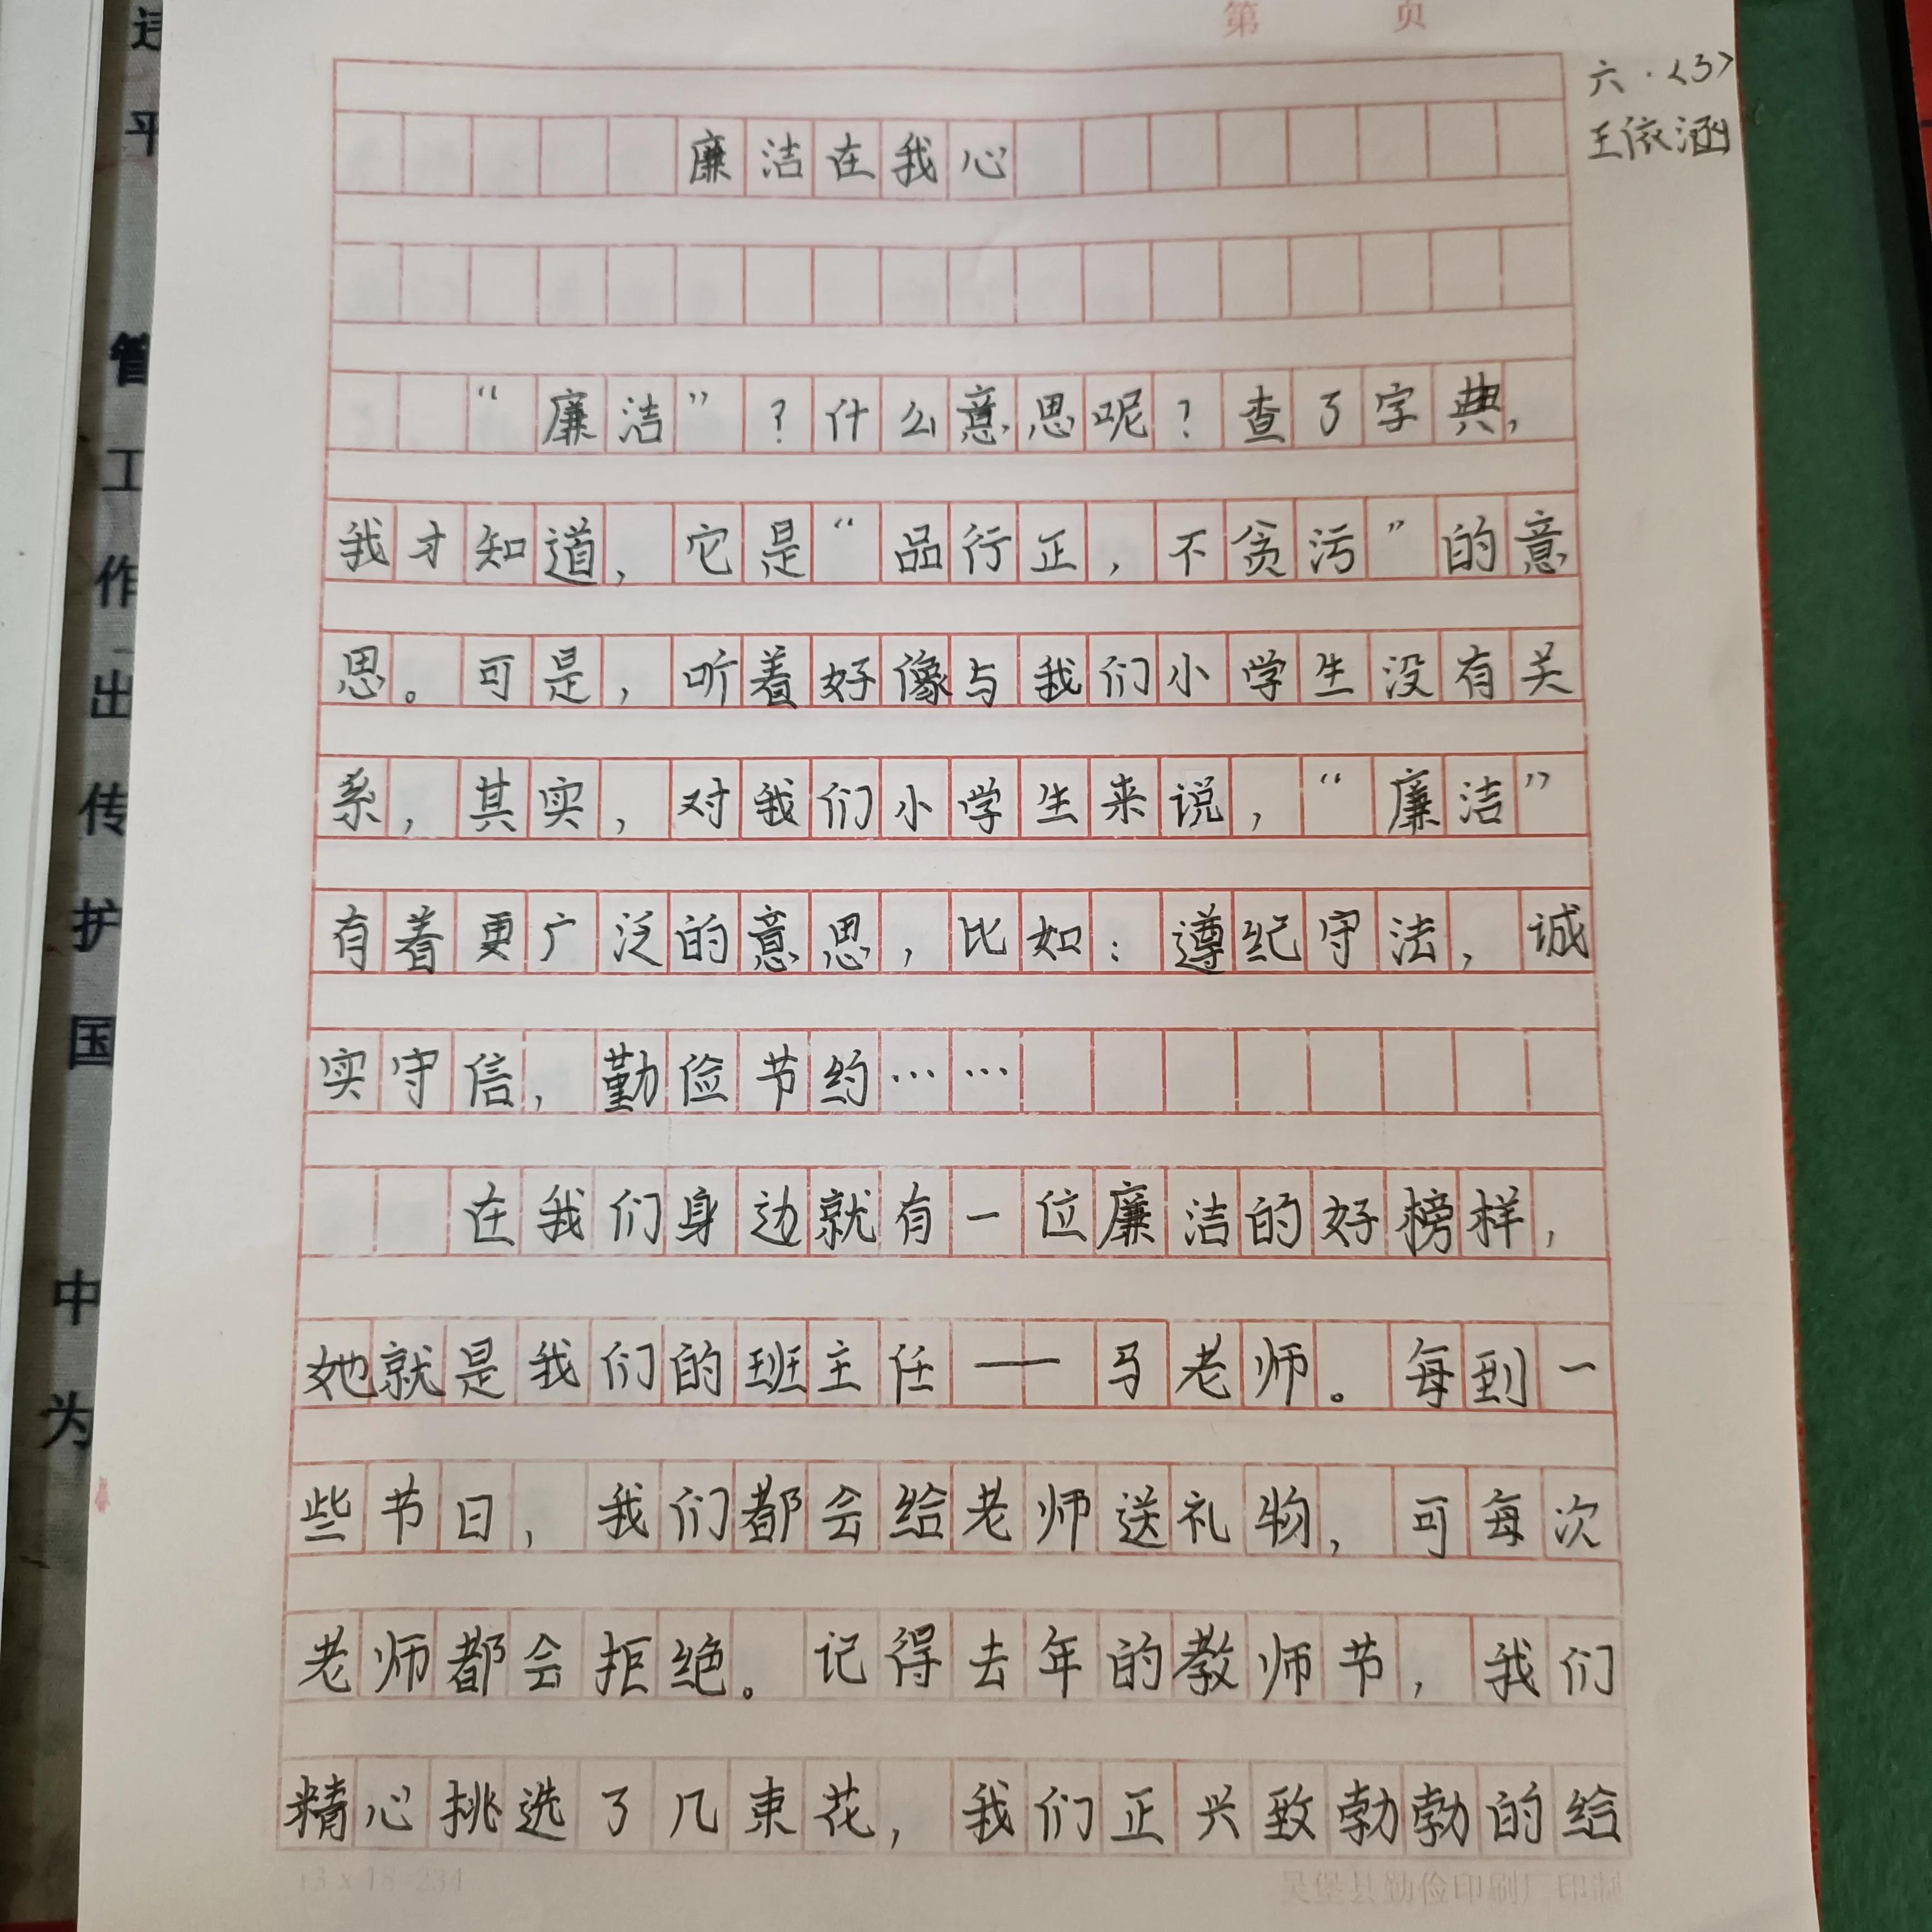 第 页
六·<3>
王依涵
廉洁在我心
“廉洁”？什么意思呢？查了字典，
我才知道，它是“品行正，不贪污”的意
思。可是，听着好像与我们小学生没有关
系，其实，对我们小学生来说，“廉洁”
有着更广泛的意思，比如：遵纪守法，诚
实守信，勤俭节约……
在我们身边就有一位廉洁的好榜样，
她就是我们的班主任——马老师。每到一
些节日，我们都会给老师送礼物，可每次
老师都会拒绝。记得去年的教师节，我们
精心挑选了几束花，我们正兴致勃勃的给
13 x 18=234
吴堡县勤俭印刷厂印制
平
管
工
作
出
传
护
国
中
为